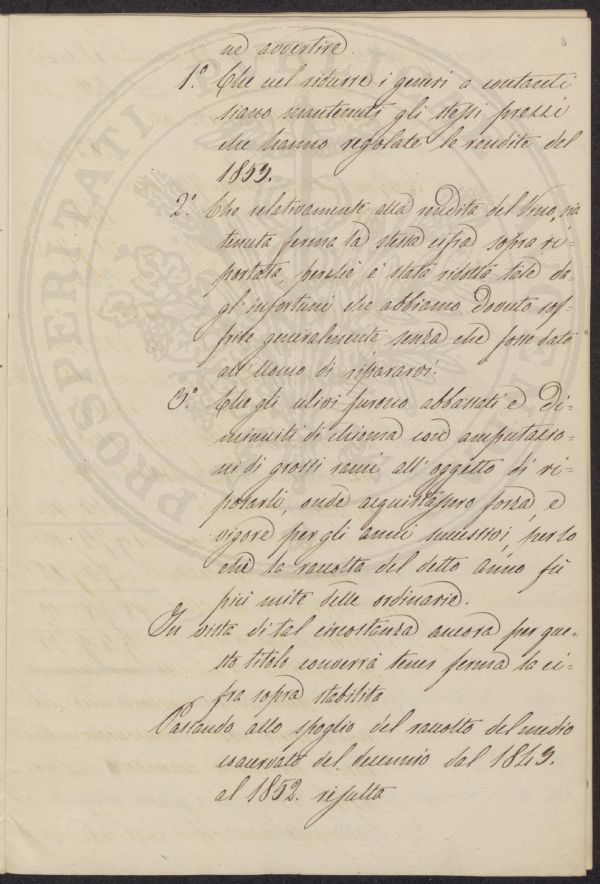 8
ne avvertire.
1.° Che nel ridurre i generi a contanti
siano mantenuti gli stessi prezzi
che hanno regolate le rendite del
1853.
2.° Che relativamente alla rendita del Vino, sia
tenuta ferma la stessa cifra sopra ri-
portata, perchè è stata ridotta tale da-
gl'infortuni che abbiamo dovuto sof-
frire generalmente senza che fosse dato
all'Uomo di ripararvi.
3.° Che gli ulivi furono abbassati e di-
minuiti di chioma con amputazio-
ni di grossi rami all'oggetto di ri-
posarli, onde acquistassero forza, e
vigore per gli anni successivi, per lo
chè la raccolta del detto anno fù
più mite delle ordinarie.
In vista di tal circostanza ancora per que-
sto titolo converrà tener ferma la ci-
fra sopra stabilita
Passando allo spoglio del raccolto del medio
coacervato del decennio dal 1843.
al 1852. risulta
PROSPERITATI PUBLICAE